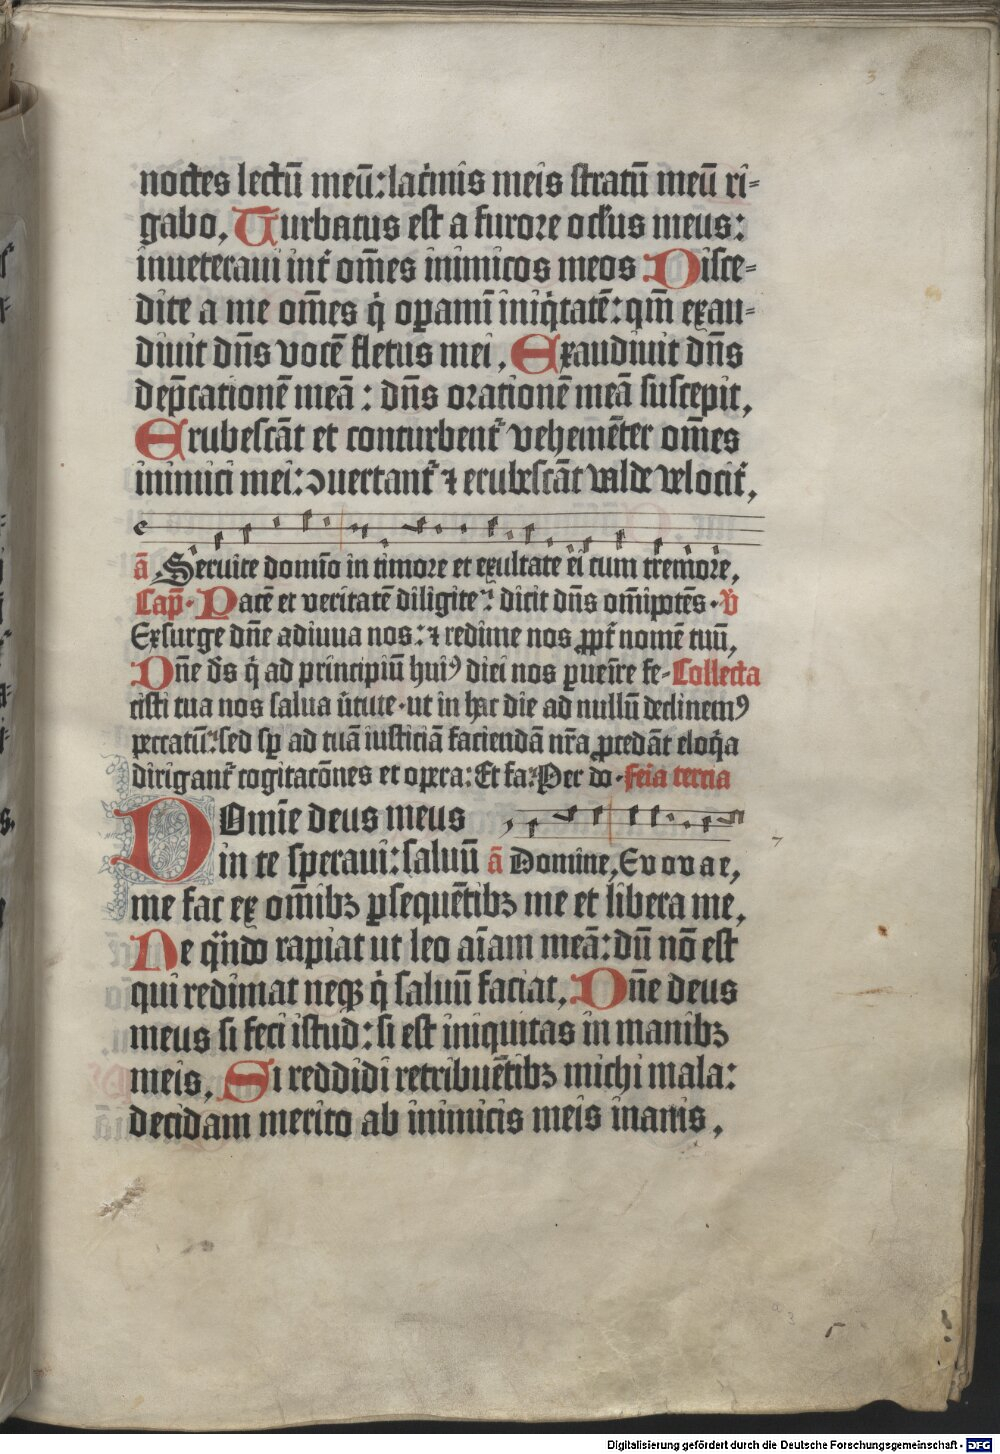 3
noctes lectū meū: lac̓mis meis stratū meū ri⸗
gabo. Turbatus est a furore oc̓lus meus:
inueteraui int̓ om̄es inimicos meos Disce⸗
dite a me om̄es q̇ oꝑamī iniq̇tatē: qm̄ exau⸗
diuit dn̄s vocē fletus mei. Exaudiuit dn̄s
dep̄cationē meā: dn̄s orationē meā suscepit.
Erubescāt et conturbent᷑ vehemēter om̄es
inimici mei: ꝯuertant᷑ ⁊ erubescāt valde velocit̓.
ā. Seruite domīo in timore et exultate ei cum tremore.
Cap̄. Pacē et veritatē diligite: dicit dn̄s om̄ipotēs. V̄
Exsurge dn̄e adiuua nos: ⁊ redime nos ꝓpt̓ nomē tuū.
Dn̄e ds̄ q̇ ad principiū huiꝰ diei nos ꝑueīre fe- Collecta
cisti tua nos salua v̓tute. ut in hac die ad nullū declinemꝰ
peccatū: sed sꝑ ad tuā iusticiā faciendā nr̄a ꝓcedāt eloq̇a
dirigant᷑ cogitacōnes et opera: Et fa: Per do. feīa tercia
Domīe deus meus
in te speraui: saluū ā Domine, Evovae,
me fac ex om̄ibꝫ ꝑsequētibꝫ me et libera me.
Ne qn̄do rapiat ut leo aīam meā: dū nō est
qui redimat neqꝫ q̇ saluū faciat. Dn̄e deus
meus si feci istud: si est iniquitas in manibꝫ
meis. Si reddidi retribuētibꝫ michi mala:
decidam merito ab inimicis meis inanis.
Digitalisierung gefördert durch die Deutsche Forschungsgemeinschaft - DFG